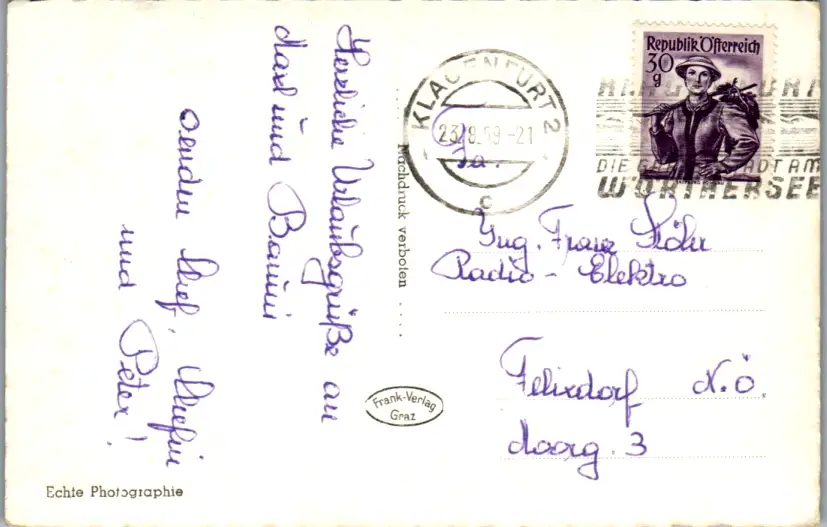 Herzliche Urlaubsgrüße an
und
senden Chef, Chefin
und Peter!
Echte Photographie
Nachdruck verboten ....
Frank-Verlag
Graz
KLAGENFURT 2
23.8.59-21
c
Republik Österreich
30
g
DIE STADT AM
WÖRTHERSEE
Fa.
Ing. Franz Stöhr
Radio - Elektro
Felixdorf N.Ö.
3